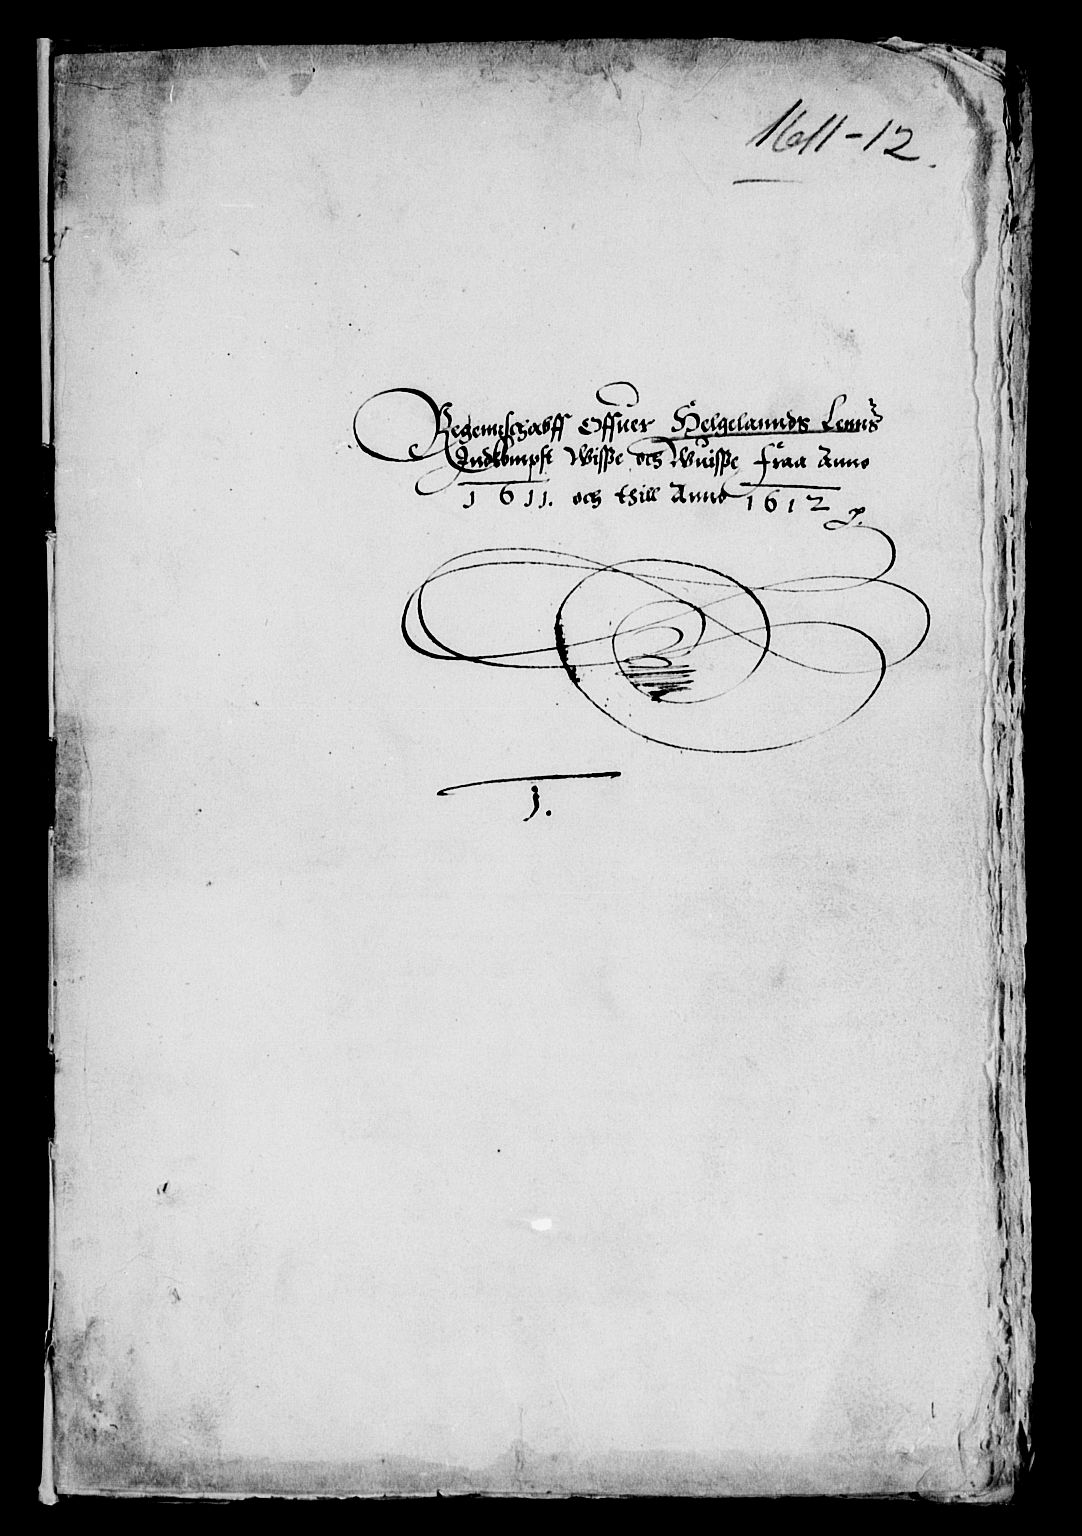 1611-12.
Regennschabff Offuer Helgelannds Lenns
Indkompst Wisse och Wuisse fraa Anno
1611. och thill Anno 1612
1.